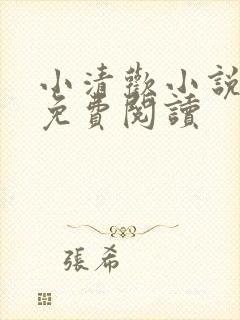 小清歡小說
免費閱讀
張希